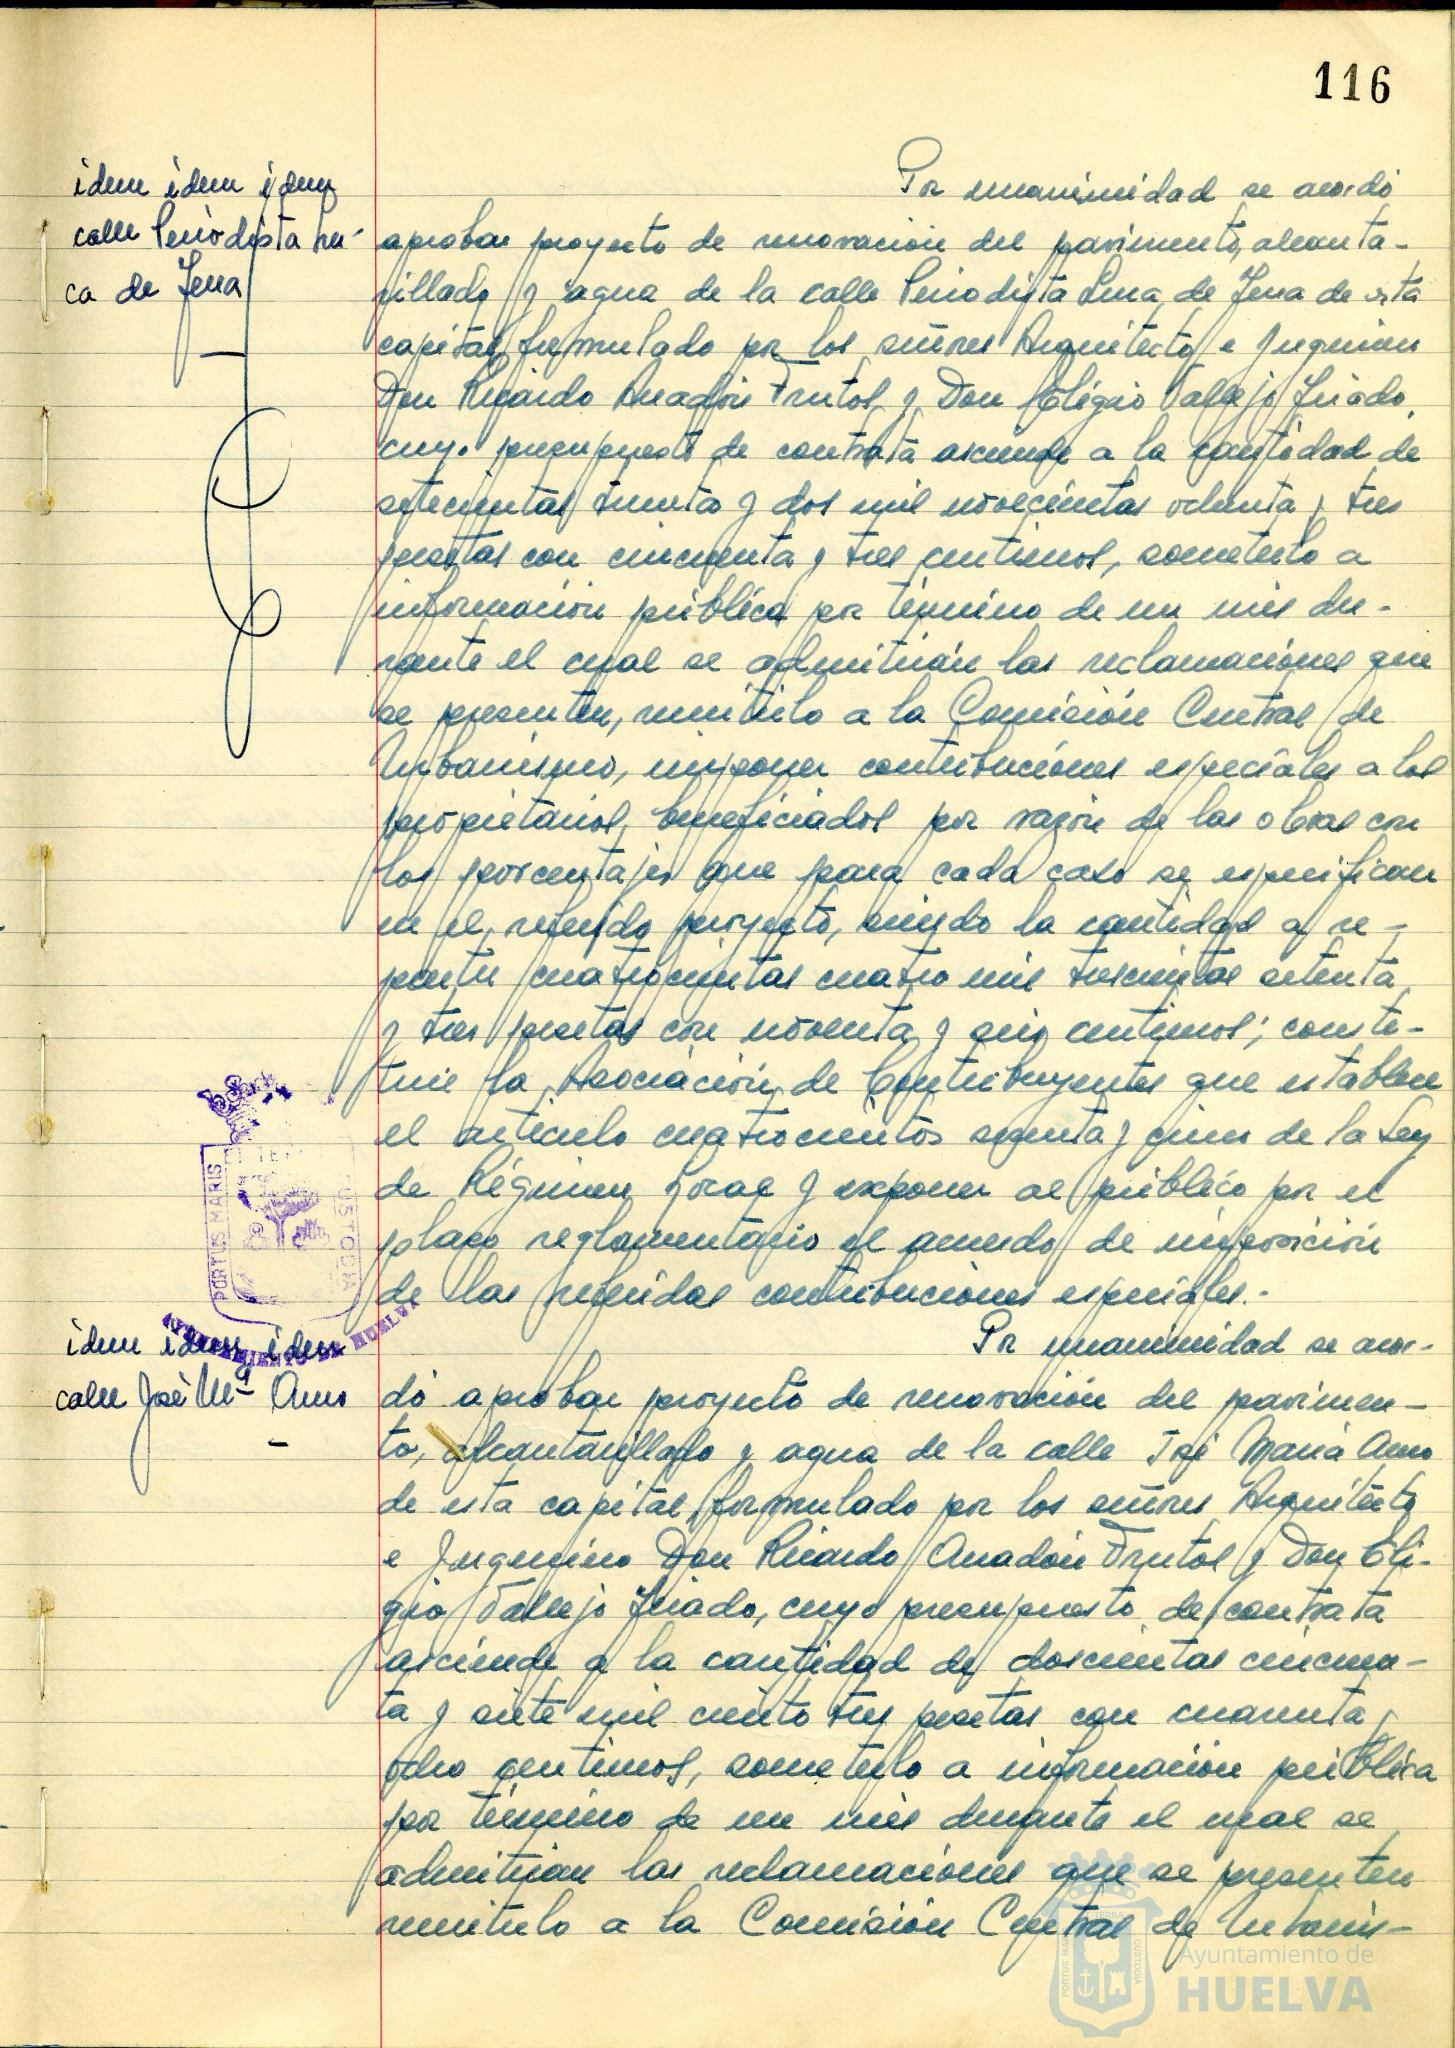 116
idem idem idem
calle Periodista Lu-
ca de Tena
Por unanimidad se acordó
aprobar proyecto de renovación del pavimento, alcanta-
rillado y agua de la calle Periodista Luca de Tena de esta
capital, formulado por los señores Arquitecto e Ingeniero
Don Ricardo Anadón Frutos y Don Eligio Vallejo Triado,
cuyo presupuesto de contrata asciende a la cantidad de
setecientas treinta y dos mil novecientas ochenta y tres
pesetas con cincuenta y tres centimos, someterlo a
información pública por término de un mes du-
rante el cual se admitirán las reclamaciones que
se presenten, remitirlo a la Comisión Central de
Urbanismo, imponer contribuciones especiales a los
propietarios beneficiados por razón de las obras con
los porcentajes que para cada caso se especifican
en el referido proyecto, siendo la cantidad a re-
partir cuatrocientas cuatro mil trescientas setenta
y tres pesetas con noventa y seis centimos; consti-
tuir la Asociación de Contribuyentes que establece
el artículo cuatrocientos sesenta y cinco de la Ley
de Régimen Local y exponer al público por el
plazo reglamentario el acuerdo de imposición
de las referidas contribuciones especiales.-
PORTUS MARIS ET TERRÆ CUSTODIA
AYUNTAMIENTO DE HUELVA
idem idem idem
calle José Mª Amo
Por unanimidad se acor-
dó aprobar proyecto de renovación del pavimen-
to, alcantarillado y agua de la calle José María Amo
de esta capital, formulado por los señores Arquitecto
e Ingeniero Don Ricardo Anadón Frutos y Don Eli-
gio Vallejo Triado, cuyo presupuesto de contrata
asciende a la cantidad de doscientas cincuen-
ta y siete mil ciento tres pesetas con cuarenta y
ocho centimos, someterlo a información pública
por término de un mes durante el cual se
admitirán las reclamaciones que se presenten
remitirlo a la Comisión Central de Urbanis-
PORTUS MARIS ET TERRÆ CUSTODIA
Ayuntamiento de
HUELVA